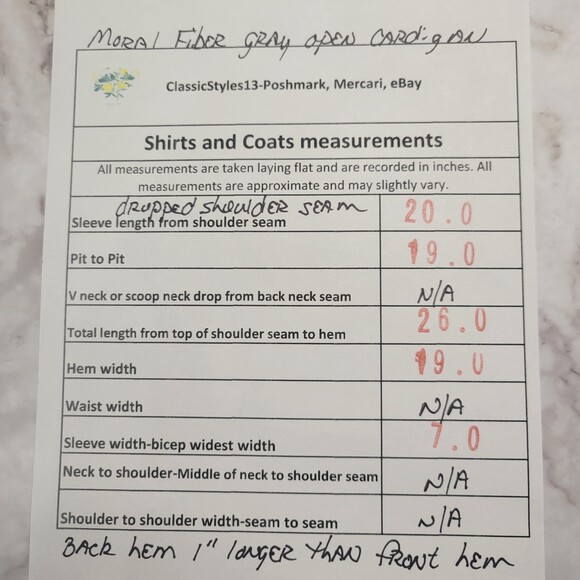 Moral Fiber gray open cardigan
ClassicStyles13-Poshmark, Mercari, eBay
Shirts and Coats measurements
All measurements are taken laying flat and are recorded in inches. All
measurements are approximate and may slightly vary.
dropped shoulder seam
Sleeve length from shoulder seam 20.0
Pit to Pit 19.0
V neck or scoop neck drop from back neck seam N/A
Total length from top of shoulder seam to hem 26.0
Hem width 19.0
Waist width N/A
Sleeve width-bicep widest width 7.0
Neck to shoulder-Middle of neck to shoulder seam N/A
Shoulder to shoulder width-seam to seam N/A
Back hem 1" longer than front hem